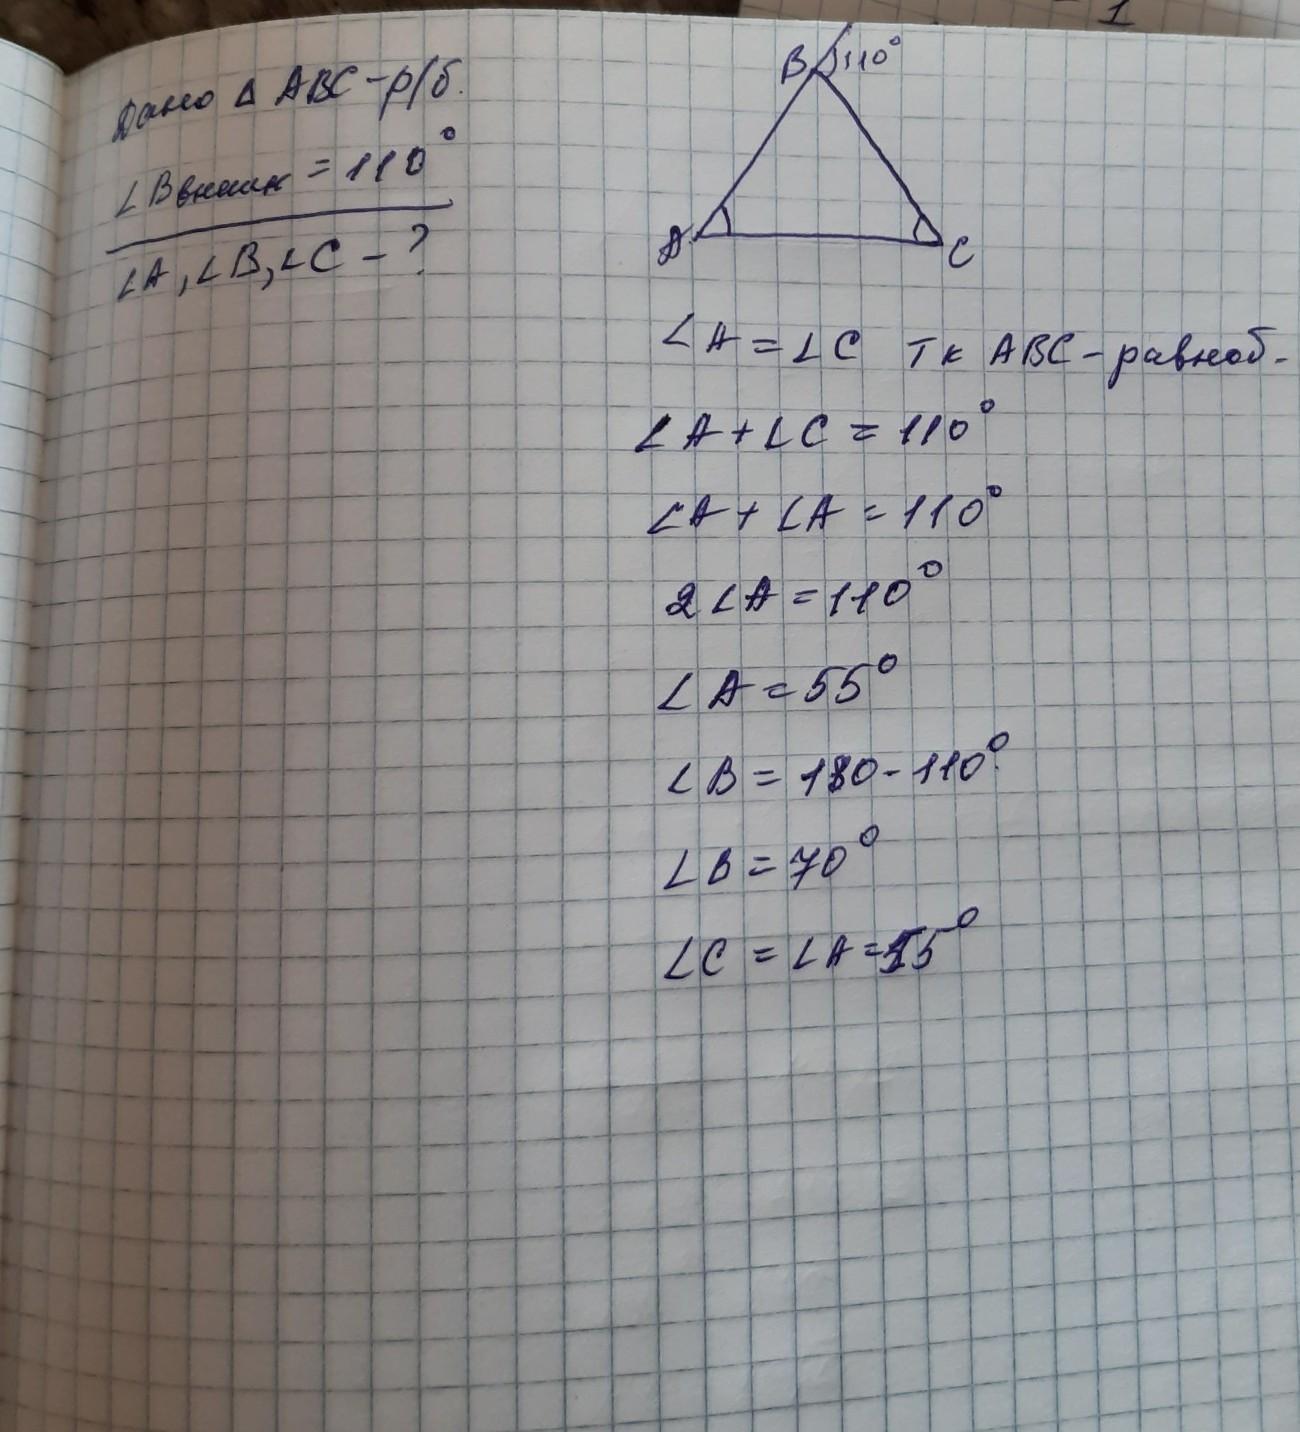 Дано Δ ABC-р/б.
∠Bвнешн = 110°
∠A, ∠B, ∠C - ?
B 110°
A C
∠A = ∠C тк ABC - равноб-
∠A + ∠C = 110°
∠A + ∠A = 110°
2∠A = 110°
∠A = 55°
∠B = 180 - 110°.
∠B = 70°
∠C = ∠A = 55°
1